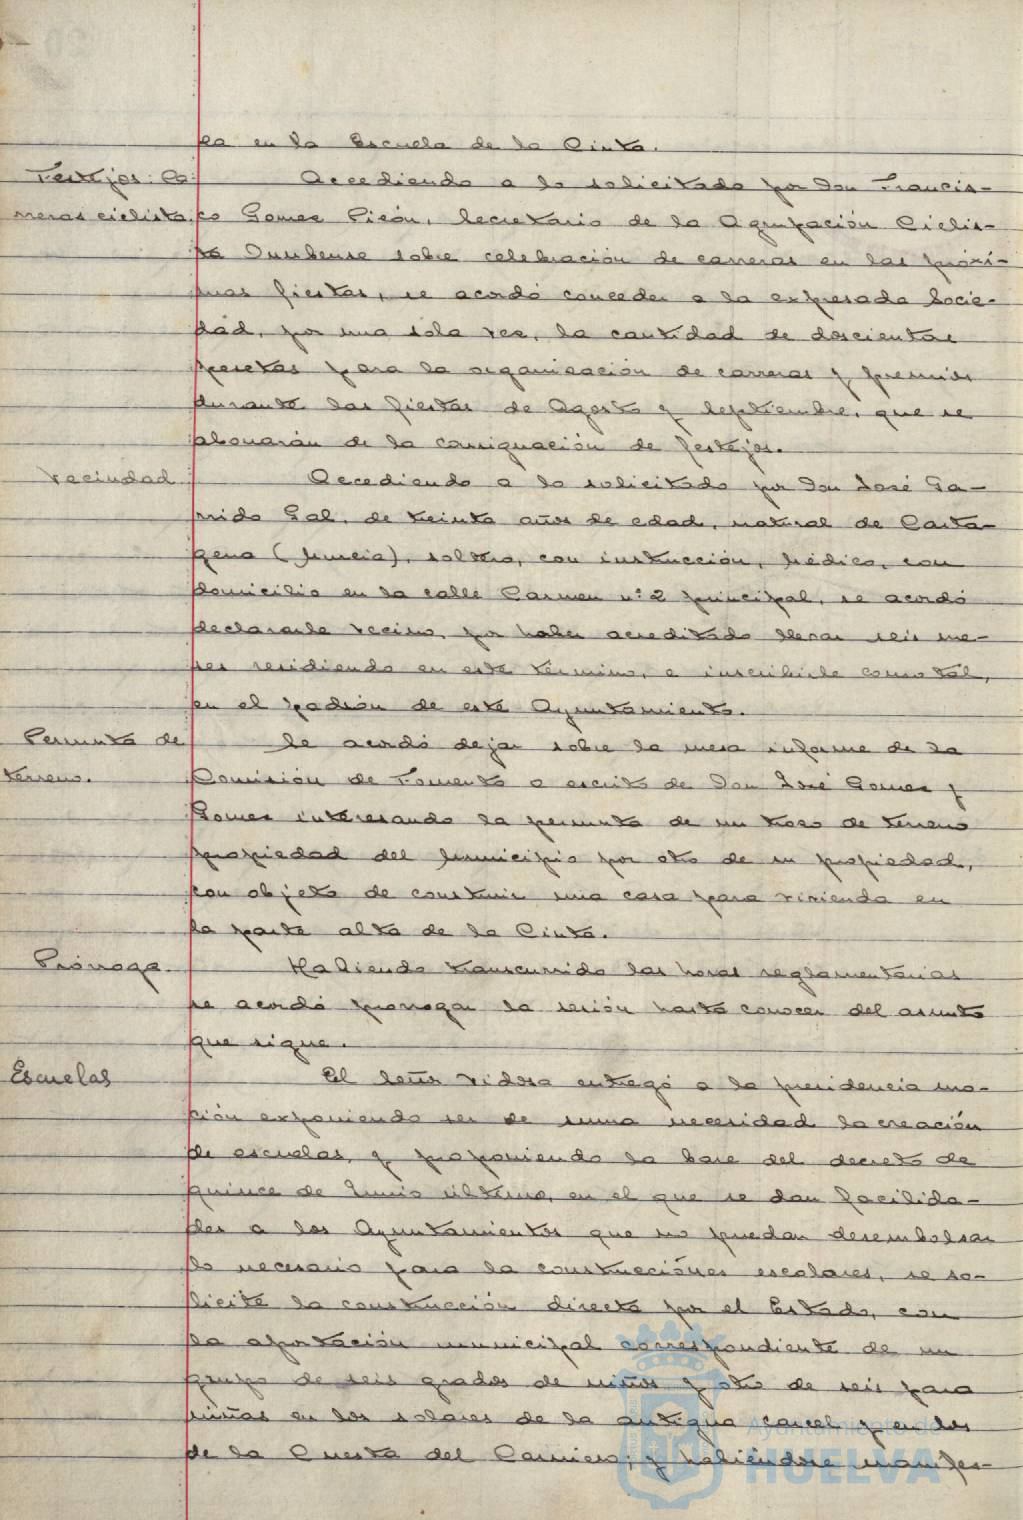 ra en la Escuela de la Cinta.
Festejos: Ca-
rreras ciclista.
Accediendo a lo solicitado por Don Francis-
co Gomez Picón, Secretario de la Agrupación Ciclis-
ta Onubense sobre celebración de carreras en las próxi-
mas fiestas, se acordó conceder a la expresada Socie-
dad, por una sola vez, la cantidad de doscientas
pesetas para la organización de carreras y premios
durante las fiestas de Agosto y Septiembre, que se
abonarán de la consignación de festejos.
Vecindad
Accediendo a lo solicitado por Don José Ga-
rrido Gal, de treinta años de edad, natural de Carta-
gena (Murcia), soltero, con instrucción, Médico, con
domicilio en la calle Carmen nº 2 principal, se acordó
declararle vecino, por haber acreditado llevar seis me-
ses residiendo en este término, e inscribirle como tal,
en el padrón de este Ayuntamiento.
Permuta de
terreno.
Se acordó dejar sobre la mesa informe de la
Comisión de Fomento a escrito de Don José Gomez y
Gomez interesando la permuta de un trozo de terreno
propiedad del Municipio por otro de su propiedad,
con objeto de construir una casa para vivienda en
la parte alta de la Cinta.
Prórroga.
Habiendo transcurrido las horas reglamentarias
se acordó prorrogar la sesión hasta conocer del asunto
que sigue.
Escuelas
El Señor Vidosa entregó a la presidencia mo-
ción exponiendo ser de suma necesidad la creación
de escuelas, y proponiendo la base del decreto de
quince de Junio último, en el que se dan facilida-
des a los Ayuntamientos que no puedan desembolsar
lo necesario para la construcciónes escolares, se so-
licite la construcción directa por el Estado, con
la aportación municipal correspondiente de un
grupo de seis grados de niños y otro de seis para
niñas en los solares de la antigua carcel y en los
de la Cuesta del Carnicero; y habiéndose manifes-
Ayuntamiento de
HUELVA